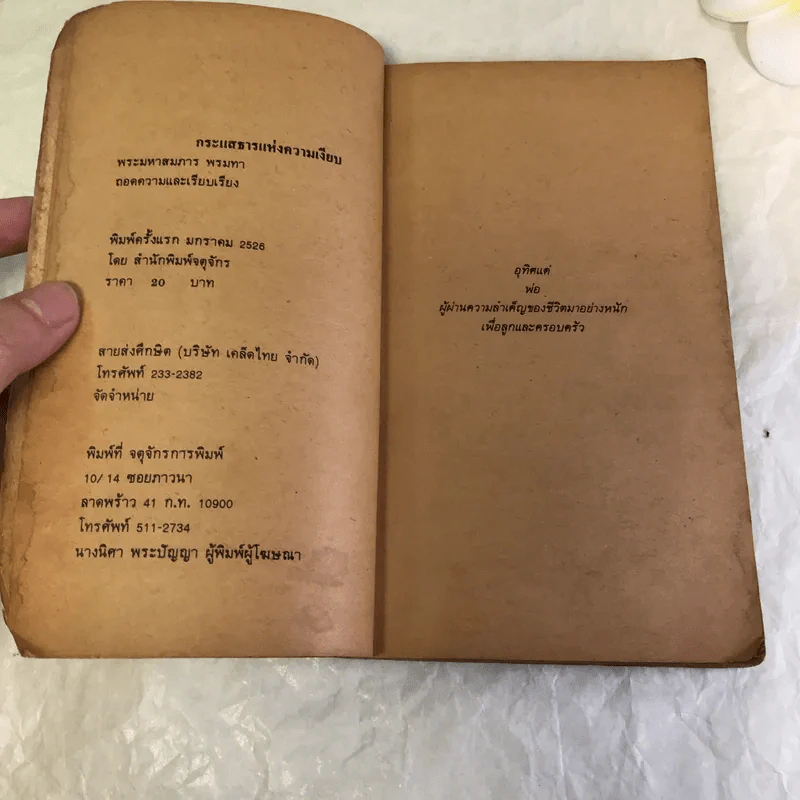 กระแสธารแห่งความเงียบ
พระมหาสมภาร พรมทา
ถอดความและเรียบเรียง
พิมพ์ครั้งแรก มกราคม 2526
โดย สำนักพิมพ์จตุจักร
ราคา 20 บาท
สายส่งศึกษิต (บริษัท เคล็ดไทย จำกัด)
โทรศัพท์ 233-2382
จัดจำหน่าย
พิมพ์ที่ จตุจักรการพิมพ์
10/14 ซอยภาวนา
ลาดพร้าว 41 ก.ท. 10900
โทรศัพท์ 511-2734
นางนิศา พระปัญญา ผู้พิมพ์ผู้โฆษณา
อุทิศแด่
พ่อ
ผู้ผ่านความลำเค็ญของชีวิตมาอย่างหนัก
เพื่อลูกและครอบครัว